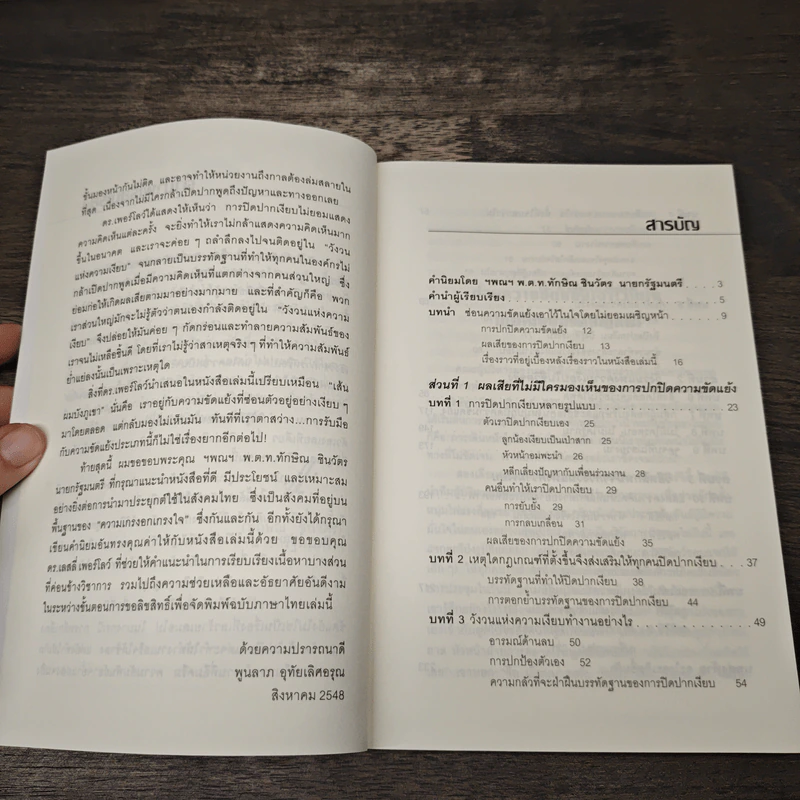 ชั้นมองหน้ากันไม่ติด และอาจทำให้หน่วยงานถึงกาลต้องล่มสลายใน
ที่สุด เนื่องจากไม่มีใครกล้าเปิดปากพูดถึงปัญหาและทางออกเลย
ดร.เพอร์โลว์ได้แสดงให้เห็นว่า การปิดปากเงียบไม่ยอมแสดง
ความคิดเห็นแต่ละครั้ง จะยิ่งทำให้เราไม่กล้าแสดงความคิดเห็นมาก
ขึ้นในอนาคต และเราจะค่อย ๆ ถลำลึกลงไปจนติดอยู่ใน "วังวน
แห่งความเงียบ" จนกลายเป็นบรรทัดฐานที่ทำให้ทุกคนในองค์กรไม่
กล้าเปิดปากพูดเมื่อมีความคิดเห็นที่แตกต่างจากคนส่วนใหญ่ ซึ่ง
ย่อมก่อให้เกิดผลเสียตามมาอย่างมากมาย และที่สำคัญก็คือ พวก
เราส่วนใหญ่มักจะไม่รู้ตัวว่าตนเองกำลังติดอยู่ใน "วังวนแห่งความ
เงียบ" จึงปล่อยให้มันค่อย ๆ กัดกร่อนและทำลายความสัมพันธ์ของ
เราจนไม่เหลือชิ้นดี โดยที่เราไม่รู้ว่าสาเหตุจริง ๆ ที่ทำให้ความสัมพันธ์
ย่ำแย่ลงนั้นเป็นเพราะเหตุใด
สิ่งที่ดร.เพอร์โลว์นำเสนอในหนังสือเล่มนี้เปรียบเหมือน "เส้น
ผมบังภูเขา" นั่นคือ เราอยู่กับความขัดแย้งที่ซ่อนตัวอยู่อย่างเงียบ ๆ
มาโดยตลอด แต่กลับมองไม่เห็นมัน ทันทีที่เราตาสว่าง...การรับมือ
กับความขัดแย้งประเภทนี้ก็ไม่ใช่เรื่องยากอีกต่อไป!
ท้ายสุดนี้ ผมขอขอบพระคุณ ฯพณฯ พ.ต.ท.ทักษิณ ชินวัตร
นายกรัฐมนตรี ที่กรุณาแนะนำหนังสือที่ดี มีประโยชน์ และเหมาะสม
อย่างยิ่งต่อการนำมาประยุกต์ใช้ในสังคมไทย ซึ่งเป็นสังคมที่อยู่บน
พื้นฐานของ "ความเกรงอกเกรงใจ" ซึ่งกันและกัน อีกทั้งยังได้กรุณา
เขียนคำนิยมอันทรงคุณค่าให้กับหนังสือเล่มนี้ด้วย ขอขอบคุณ
ดร.เลสลี่ เพอร์โลว์ ที่ช่วยให้คำแนะนำในการเรียบเรียงเนื้อหาบางส่วน
ที่ค่อนข้างวิชาการ รวมไปถึงความช่วยเหลือและอัธยาศัยอันดีงาม
ในระหว่างขั้นตอนการขอลิขสิทธิ์เพื่อจัดพิมพ์ฉบับภาษาไทยเล่มนี้
ด้วยความปรารถนาดี
พูนลาภ อุทัยเลิศอรุณ
สิงหาคม 2548
สารบัญ
คำนิยมโดย ฯพณฯ พ.ต.ท.ทักษิณ ชินวัตร นายกรัฐมนตรี . . . . 3
คำนำผู้เรียบเรียง . . . . . . . . . . . . . . . . . . . . . . 5
บทนำ ซ่อนความขัดแย้งเอาไว้ในใจโดยไม่ยอมเผชิญหน้า . . . . . 9
การปกปิดความขัดแย้ง 12
ผลเสียของการปิดปากเงียบ 13
เรื่องราวที่อยู่เบื้องหลังเรื่องราวในหนังสือเล่มนี้ 16
ส่วนที่ 1 ผลเสียที่ไม่มีใครมองเห็นของการปกปิดความขัดแย้ง
บทที่ 1 การปิดปากเงียบหลายรูปแบบ . . . . . . . . . . . 23
ตัวเราปิดปากเงียบเอง 25
ลูกน้องเงียบเป็นเป่าสาก 25
หัวหน้าอมพะนำ 26
หลีกเลี่ยงปัญหากับเพื่อนร่วมงาน 28
คนอื่นทำให้เราปิดปากเงียบ 29
การยับยั้ง 29
การกลบเกลื่อน 31
ผลเสียของการปกปิดความขัดแย้ง 35
บทที่ 2 เหตุใดกฎเกณฑ์ที่ตั้งขึ้นจึงส่งเสริมให้ทุกคนปิดปากเงียบ . 37
บรรทัดฐานที่ทำให้ปิดปากเงียบ 38
การตอกย้ำบรรทัดฐานของการปิดปากเงียบ 44
บทที่ 3 วังวนแห่งความเงียบทำงานอย่างไร . . . . . . . . . . 49
อารมณ์ด้านลบ 50
การปกป้องตัวเอง 52
ความกลัวที่จะฝ่าฝืนบรรทัดฐานของการปิดปากเงียบ 54